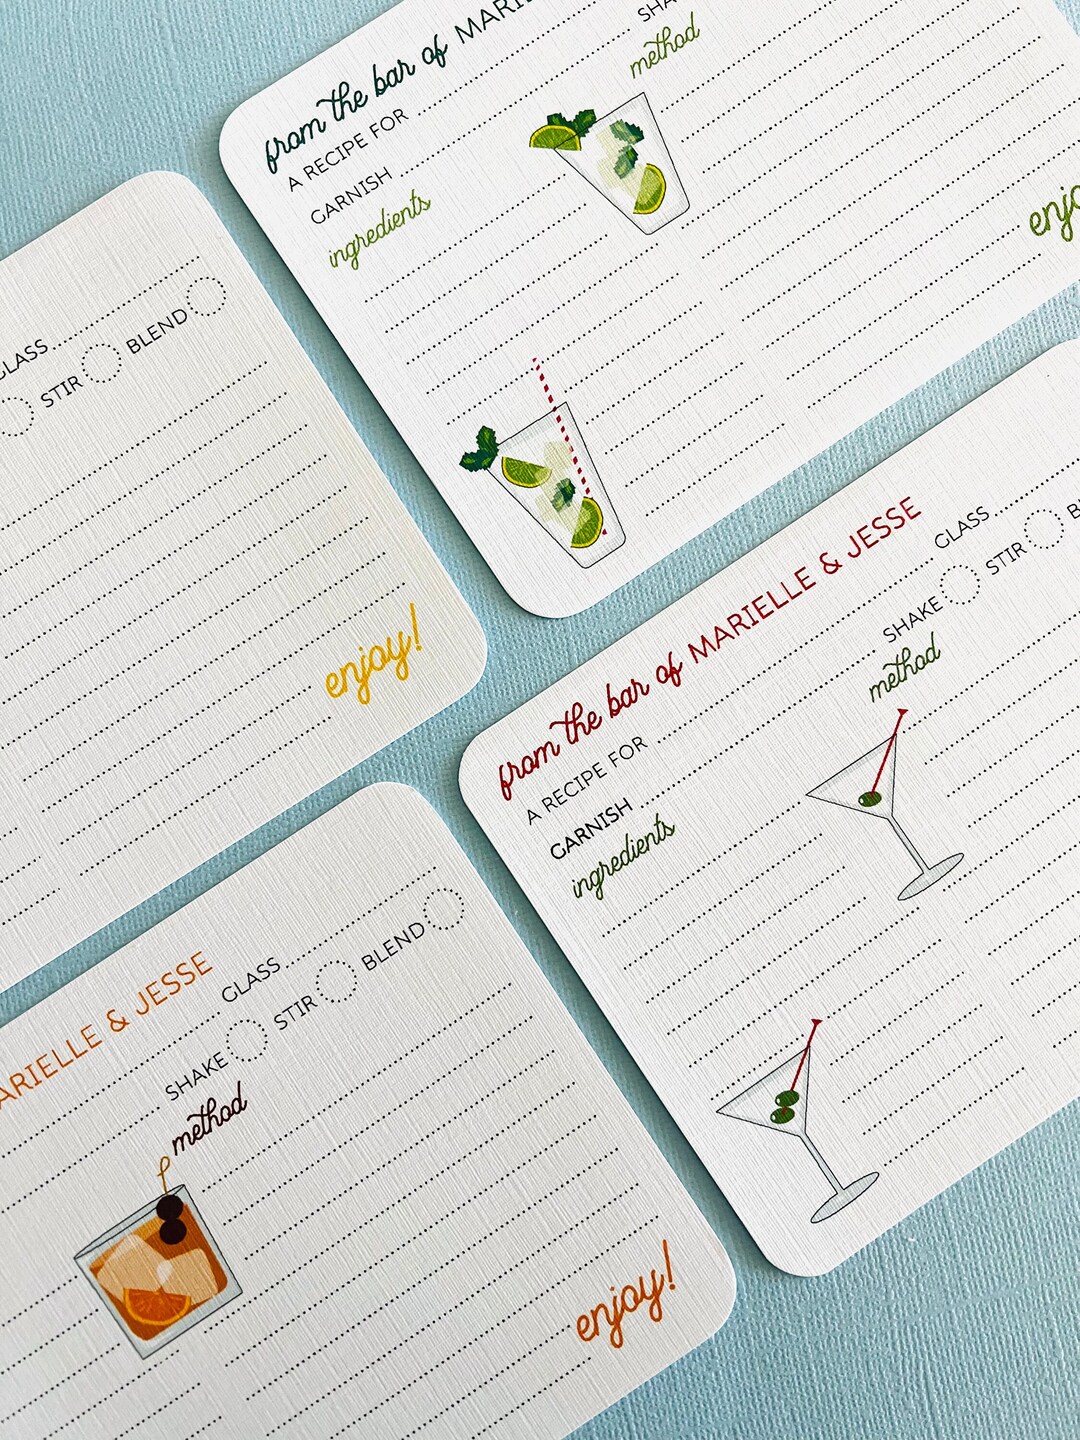 from the bar of
A RECIPE FOR
GARNISH
method
ingredients
GLASS
STIR BLEND
enjoy!
from the bar of MARIELLE & JESSE
A RECIPE FOR GLASS
GARNISH SHAKE STIR
ingredients method
& JESSE
GLASS
SHAKE STIR BLEND
method
enjoy!